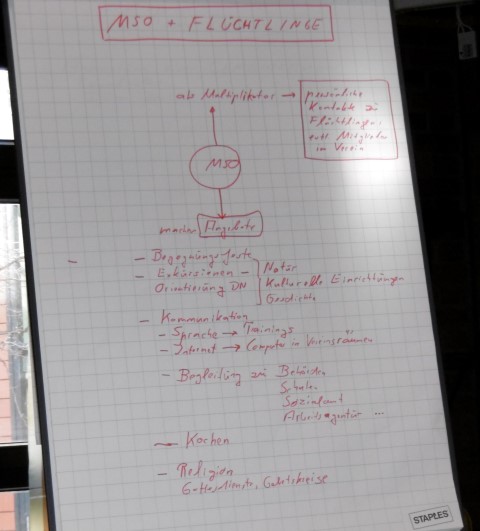 MSO + FLÜCHTLINGE
als Multiplikator → persönliche
Kontakte zu
Flüchtlingen,
evtl. Mitglieder
im Verein
MSO
machen Angebote
- Begegnungsfeste
- Exkursionen - Natur
Orientierung DN Kulturelle Einrichtungen
Geschichte
- Kommunikation
- Sprache → Trainings
- Internet → Computer in Vereinsräumen
- Begleitung zu Behörden
Schule
Sozialamt
Arbeitsagentur ...
- Kochen
- Religion
Gottesdienste, Gebetskreise
STAPLES